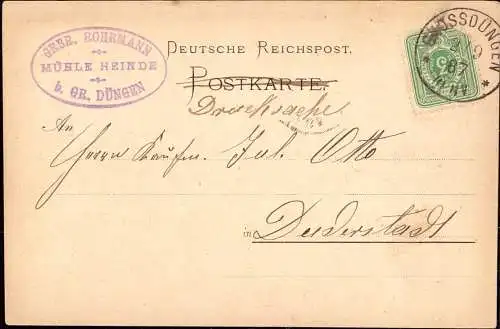 GEBR. BORRMANN
MÜHLE HEINDE
b. GR. DÜNGEN
DEUTSCHE REICHSPOST.
POSTKARTE.
Drucksache
GROSSDÜNGEN
An
Herrn Kaufm. Jul. Otto
in Duderstadt